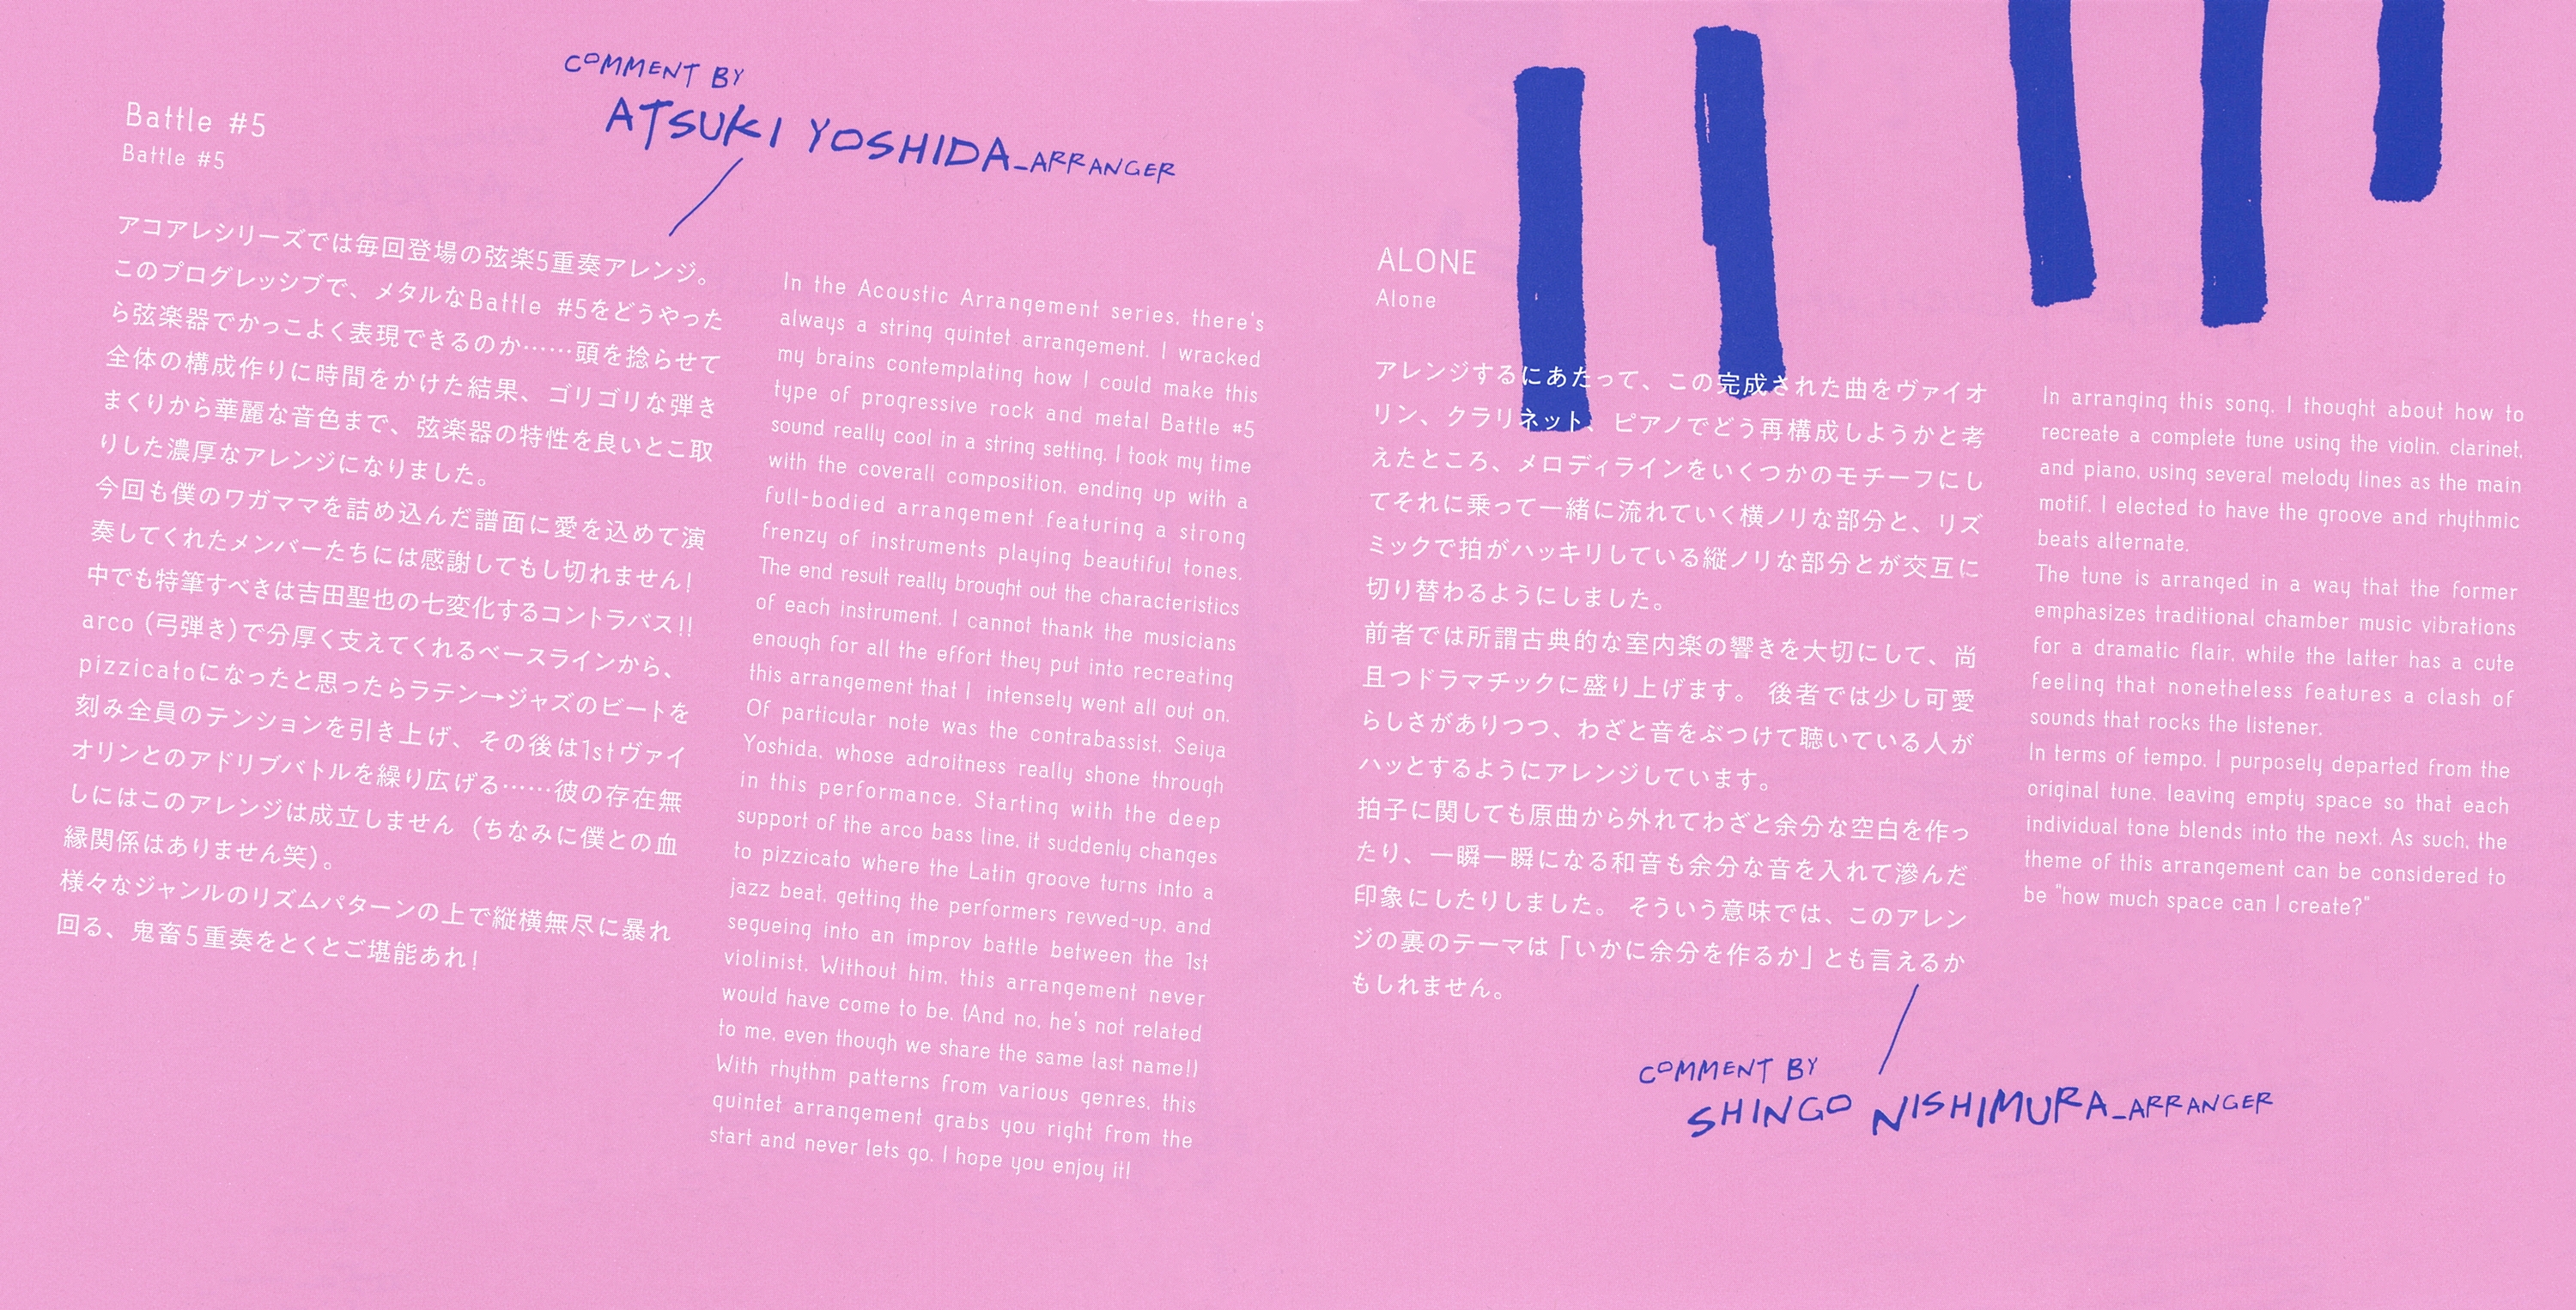 COMMENT BY
ATSUKI YOSHIDA_ARRANGER
Battle #5
Battle #5
アコアレシリーズでは毎回登場の弦楽5重奏アレンジ。
このプログレッシブで、メタルなBattle #5をどうやった
ら弦楽器でかっこよく表現できるのか……頭を捻らせて
全体の構成作りに時間をかけた結果、ゴリゴリな弾き
まくりから華麗な音色まで、弦楽器の特性を良いとこ取
りした濃厚なアレンジになりました。
今回も僕のワガママを詰め込んだ譜面に愛を込めて演
奏してくれたメンバーたちには感謝してもし切れません!
中でも特筆すべきは吉田聖也の七変化するコントラバス!!
arco（弓弾き）で分厚く支えてくれるベースラインから、
pizzicatoになったと思ったらラテン→ジャズのビートを
刻み全員のテンションを引き上げ、その後は1stヴァイ
オリンとのアドリブバトルを繰り広げる……彼の存在無
しにはこのアレンジは成立しません（ちなみに僕との血
縁関係はありません笑）。
様々なジャンルのリズムパターンの上で縦横無尽に暴れ
回る、鬼畜5重奏をとくとご堪能あれ!
In the Acoustic Arrangement series, there's
always a string quintet arrangement. I wracked
my brains contemplating how I could make this
type of progressive rock and metal Battle #5
sound really cool in a string setting. I took my time
with the coverall composition, ending up with a
full-bodied arrangement featuring a strong
frenzy of instruments playing beautiful tones.
The end result really brought out the characteristics
of each instrument. I cannot thank the musicians
enough for all the effort they put into recreating
this arrangement that I intensely went all out on.
Of particular note was the contrabassist, Seiya
Yoshida, whose adroitness really shone through
in this performance. Starting with the deep
support of the arco bass line, it suddenly changes
to pizzicato where the Latin groove turns into a
jazz beat, getting the performers revved-up, and
segueing into an improv battle between the 1st
violinist. Without him, this arrangement never
would have come to be. (And no, he's not related
to me, even though we share the same last name!)
With rhythm patterns from various genres, this
quintet arrangement grabs you right from the
start and never lets go. I hope you enjoy it!
ALONE
Alone
アレンジするにあたって、この完成された曲をヴァイオ
リン、クラリネット、ピアノでどう再構成しようかと考
えたところ、メロディラインをいくつかのモチーフにし
てそれに乗って一緒に流れていく横ノリな部分と、リズ
ミックで拍がハッキリしている縦ノリな部分とが交互に
切り替わるようにしました。
前者では所謂古典的な室内楽の響きを大切にして、尚
且つドラマチックに盛り上げます。後者では少し可愛
らしさがありつつ、わざと音をぶつけて聴いている人が
ハッとするようにアレンジしています。
拍子に関しても原曲から外れてわざと余分な空白を作っ
たり、一瞬一瞬になる和音も余分な音を入れて滲んだ
印象にしたりしました。そういう意味では、このアレン
ジの裏のテーマは「いかに余分を作るか」とも言えるか
もしれません。
In arranging this song, I thought about how to
recreate a complete tune using the violin, clarinet,
and piano, using several melody lines as the main
motif. I elected to have the groove and rhythmic
beats alternate.
The tune is arranged in a way that the former
emphasizes traditional chamber music vibrations
for a dramatic flair, while the latter has a cute
feeling that nonetheless features a clash of
sounds that rocks the listener.
In terms of tempo, I purposely departed from the
original tune, leaving empty space so that each
individual tone blends into the next. As such, the
theme of this arrangement can be considered to
be "how much space can I create?"
COMMENT BY
SHINGO NISHIMURA_ARRANGER